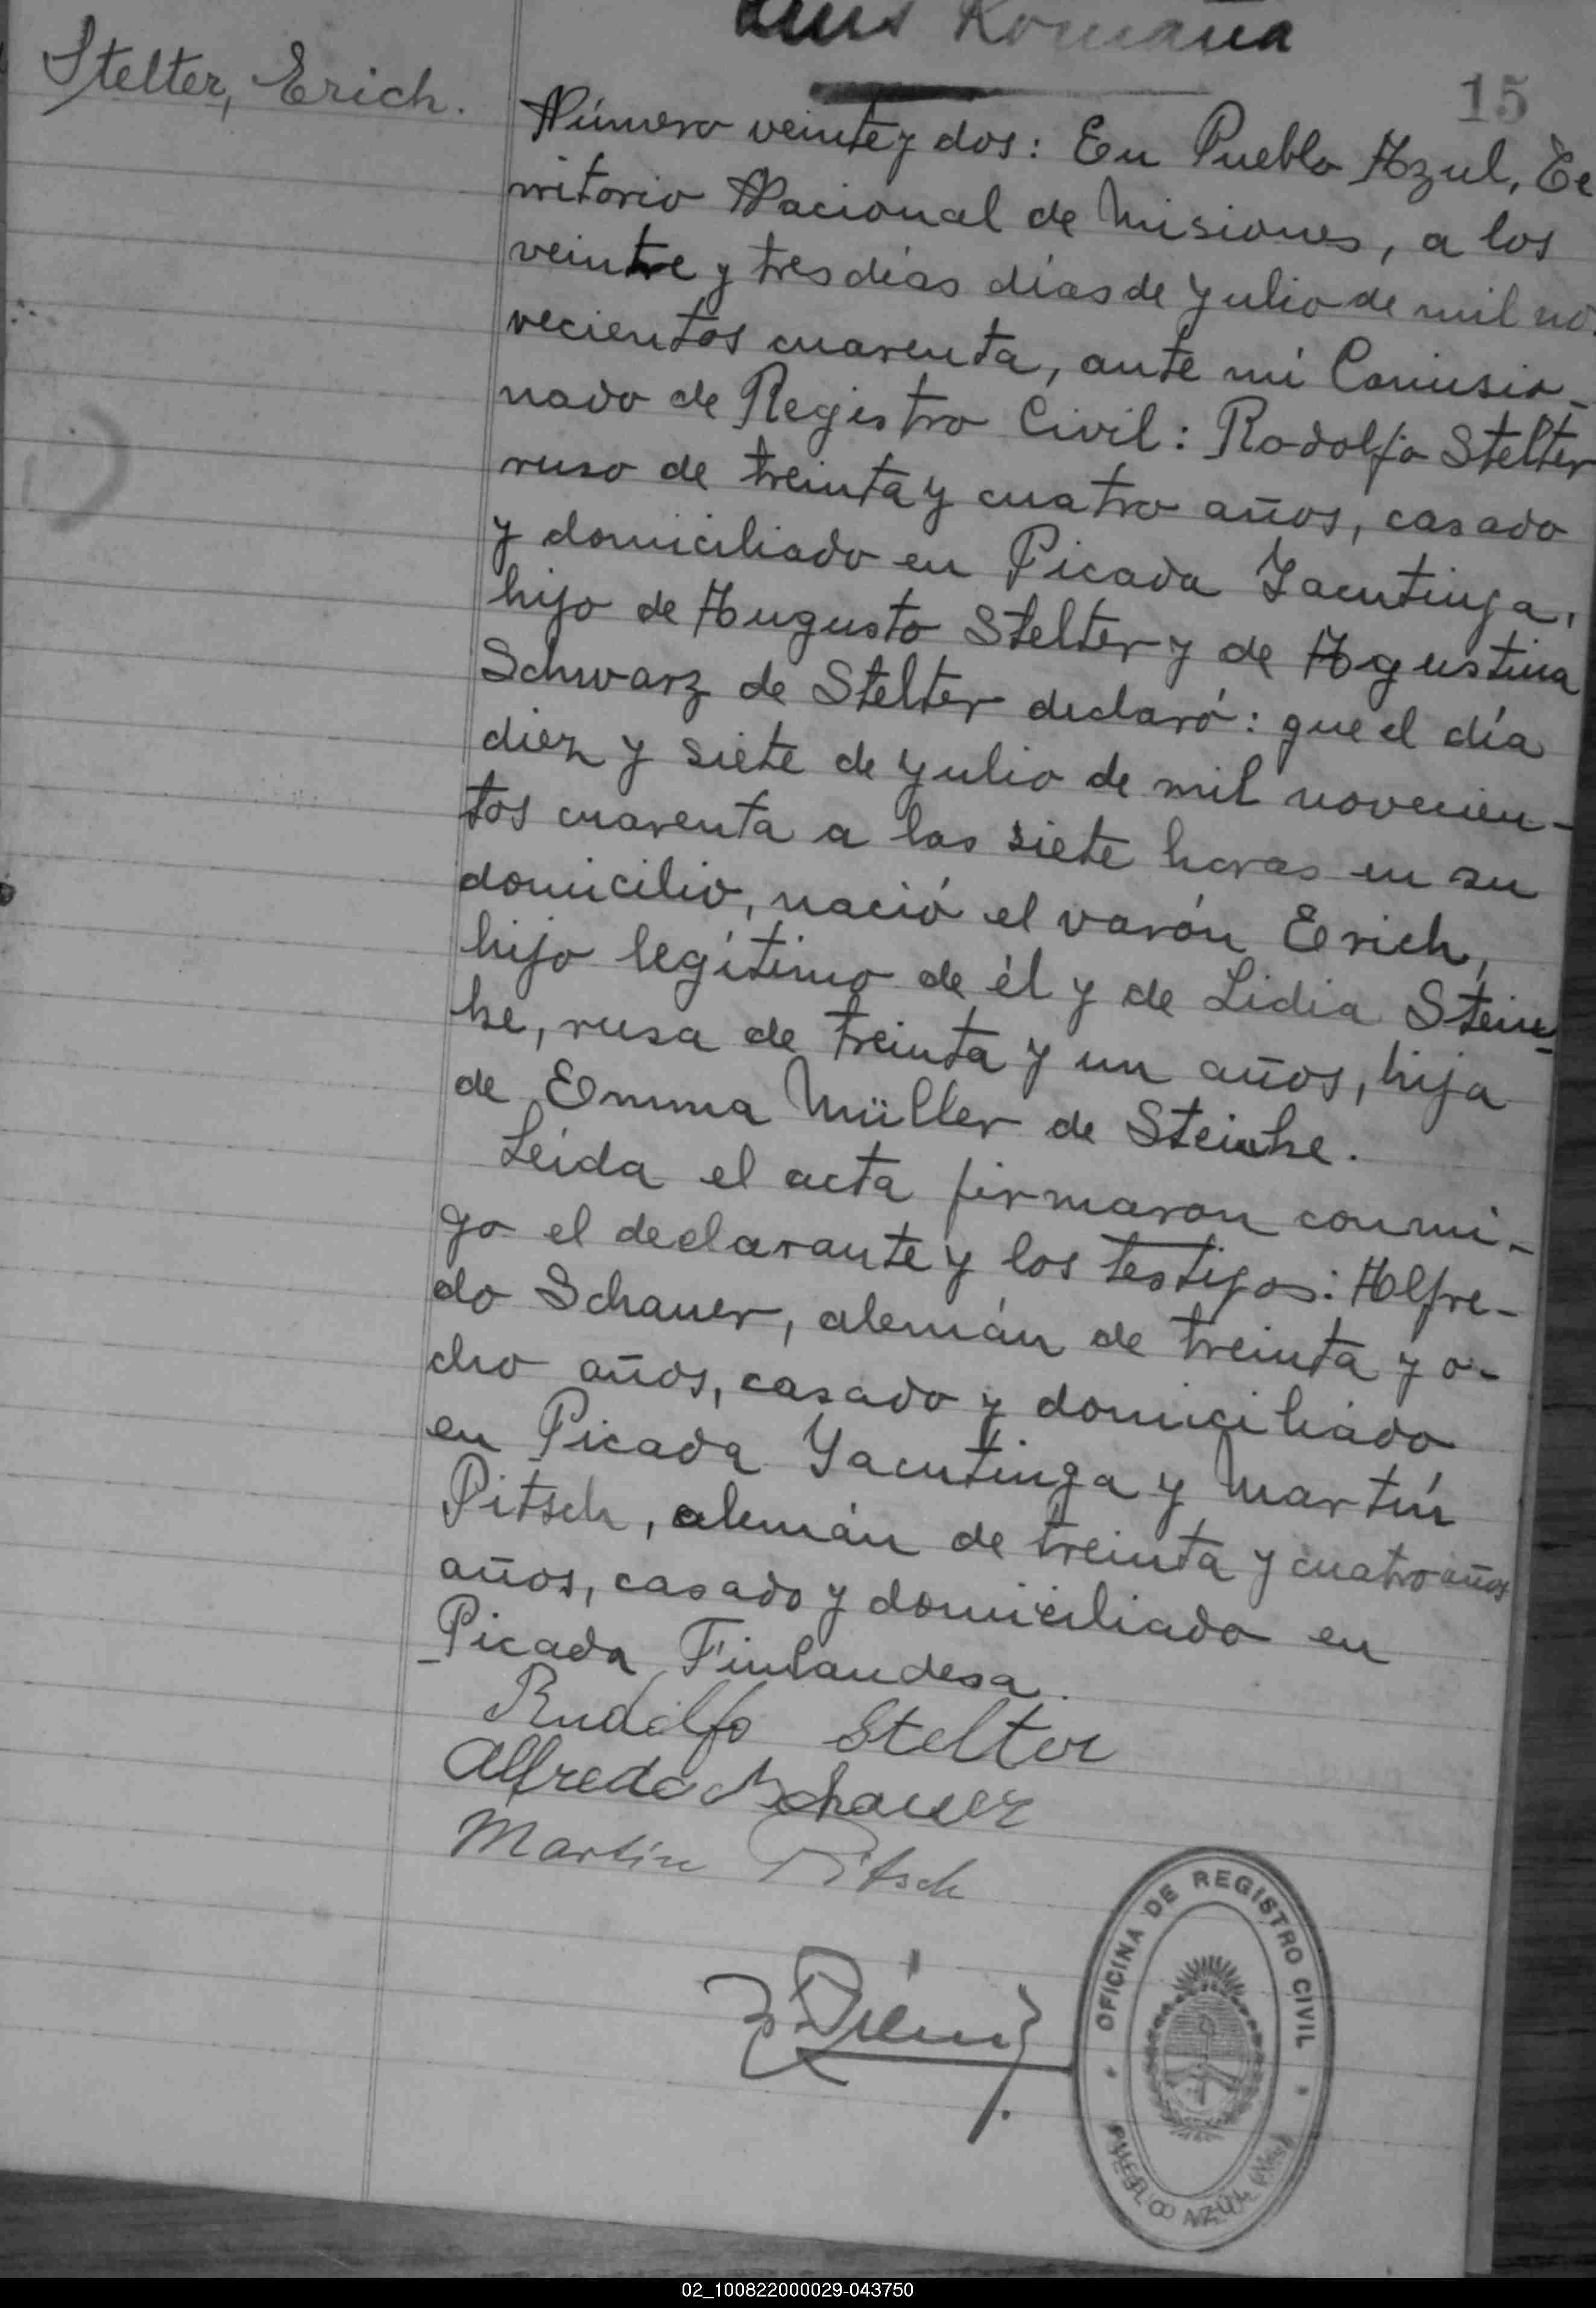 Luis Romaña
15
Stelter, Erich.
Número veinte y dos: En Pueblo Azul, Te
rritorio Nacional de Misiones, a los
veinte y tres días días de Yulio de mil no-
vecientos cuarenta, ante mí Comisio-
nado de Registro Civil: Rodolfo Stelter
ruso de treinta y cuatro años, casado
y domiciliado en Picada Yacutinga,
hijo de Augusto Stelter y de Agustina
Schwarz de Stelter declaró: que el día
diez y siete de Yulio de mil novecien-
tos cuarenta a las siete horas en su
domicilio, nació el varón Erich,
hijo legítimo de él y de Lidia Stein-
ke, rusa de treinta y un años, hija
de Emma Müller de Steinke.
Leída el acta firmaron conmi-
go el declarante y los testigos: Alfre-
do Schauer, alemán de treinta y o-
cho años, casado y domiciliado
en Picada Yacutinga y Martín
Pitsch, alemán de treinta y cuatro años
años, casado y domiciliado en
Picada Finlandesa.
Rudolfo Stelter
Alfredo Schauer
Martin Pitsch
OFICINA DE REGISTRO CIVIL
PUEBLO AZUL
02_100822000029-043750